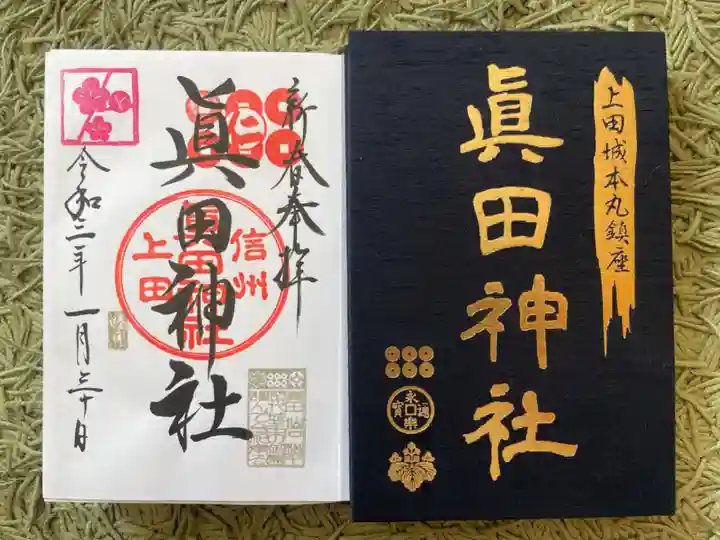 新春奉拝
眞田神社
信州
上田
眞田神社
令和二年一月三十日
上田城本丸鎮座
眞田神社
永樂通寶